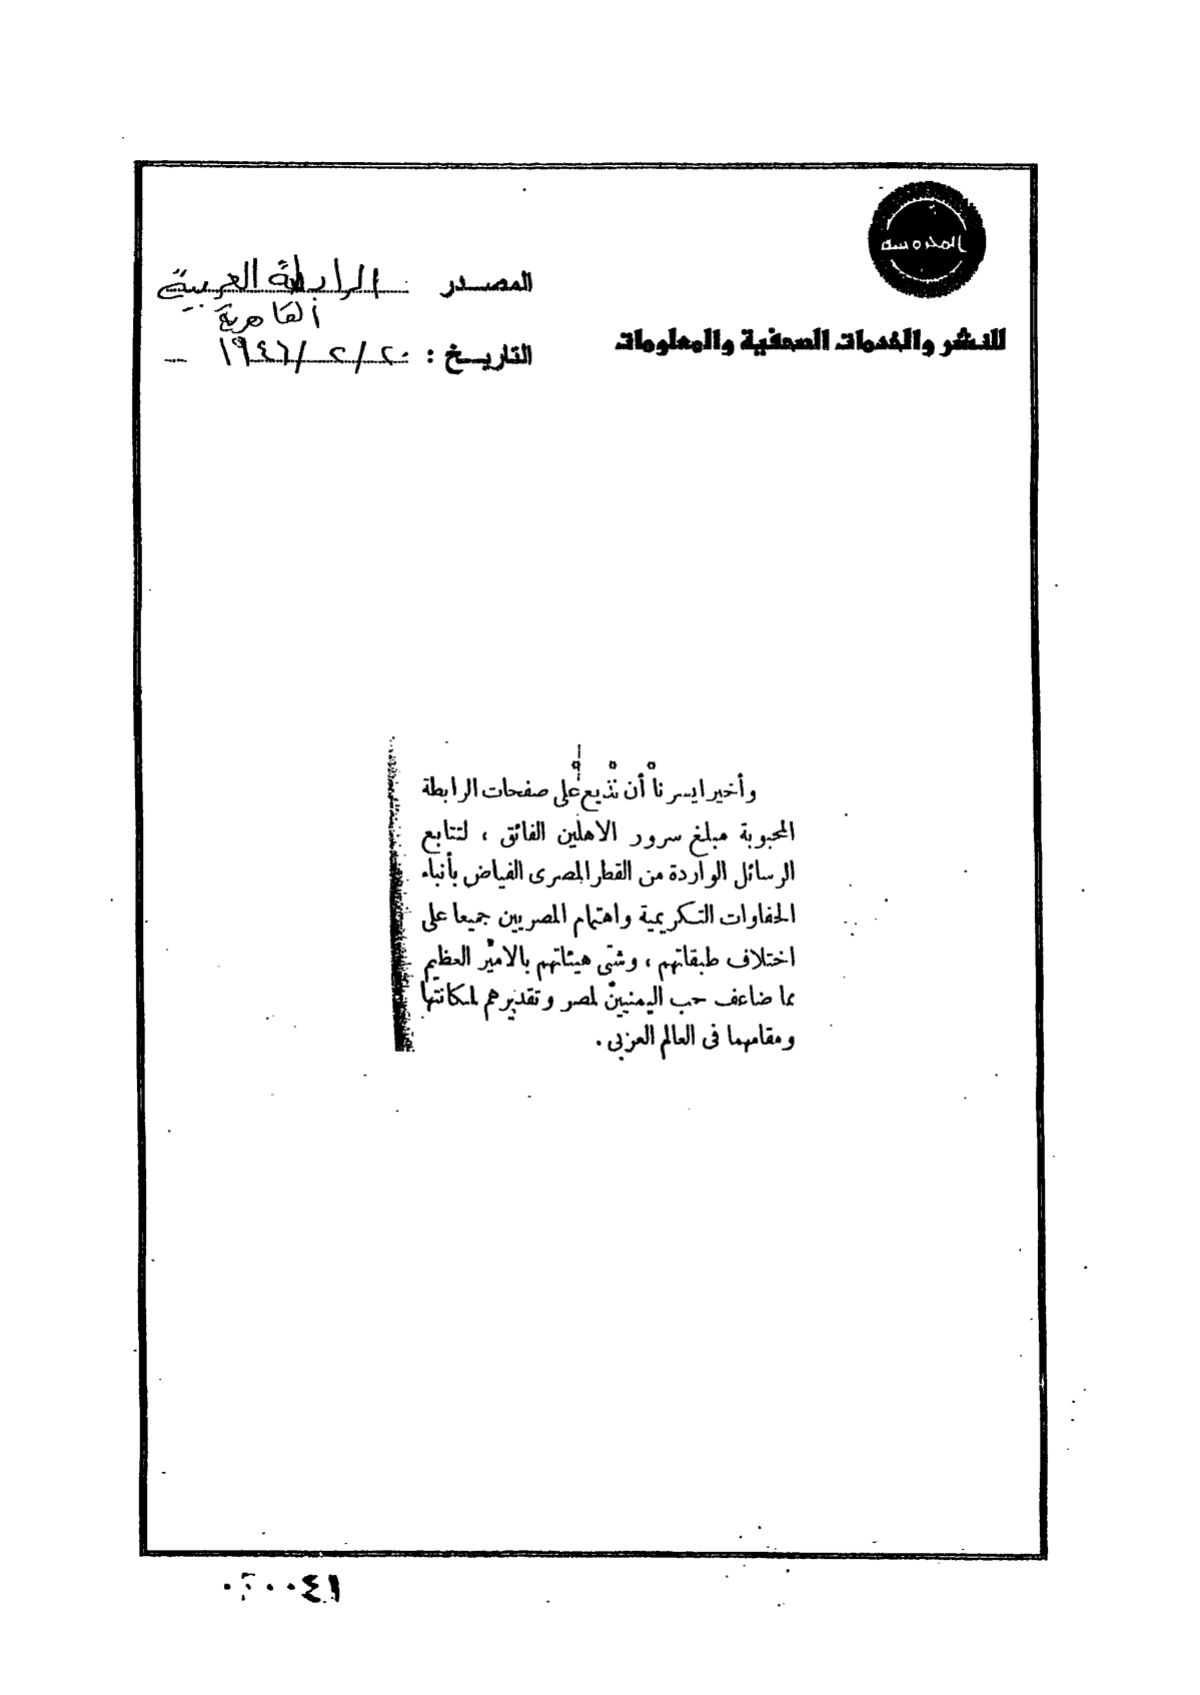 المحروسة
للنشر والخدمات الصحفية والمعلومات
المصدر : الرابطة العربية
القاهرية
التاريخ : ٢٠/٢/١٩٤٦
وأخيرا يسرنا أن نذيع على صفحات الرابطة
المحبوبة مبلغ سرور الاهلين الفائق ، لتتابع
الرسائل الواردة من القطر المصرى الفياض بأنباء
الحفاوات التكريمية واهتمام المصريين جميعا على
اختلاف طبقاتهم ، وشتى هيئاتهم بالامير العظيم
مما ضاعف حب اليمنيين لمصر وتقديرهم لمكانتها
ومقامها فى العالم العربى .